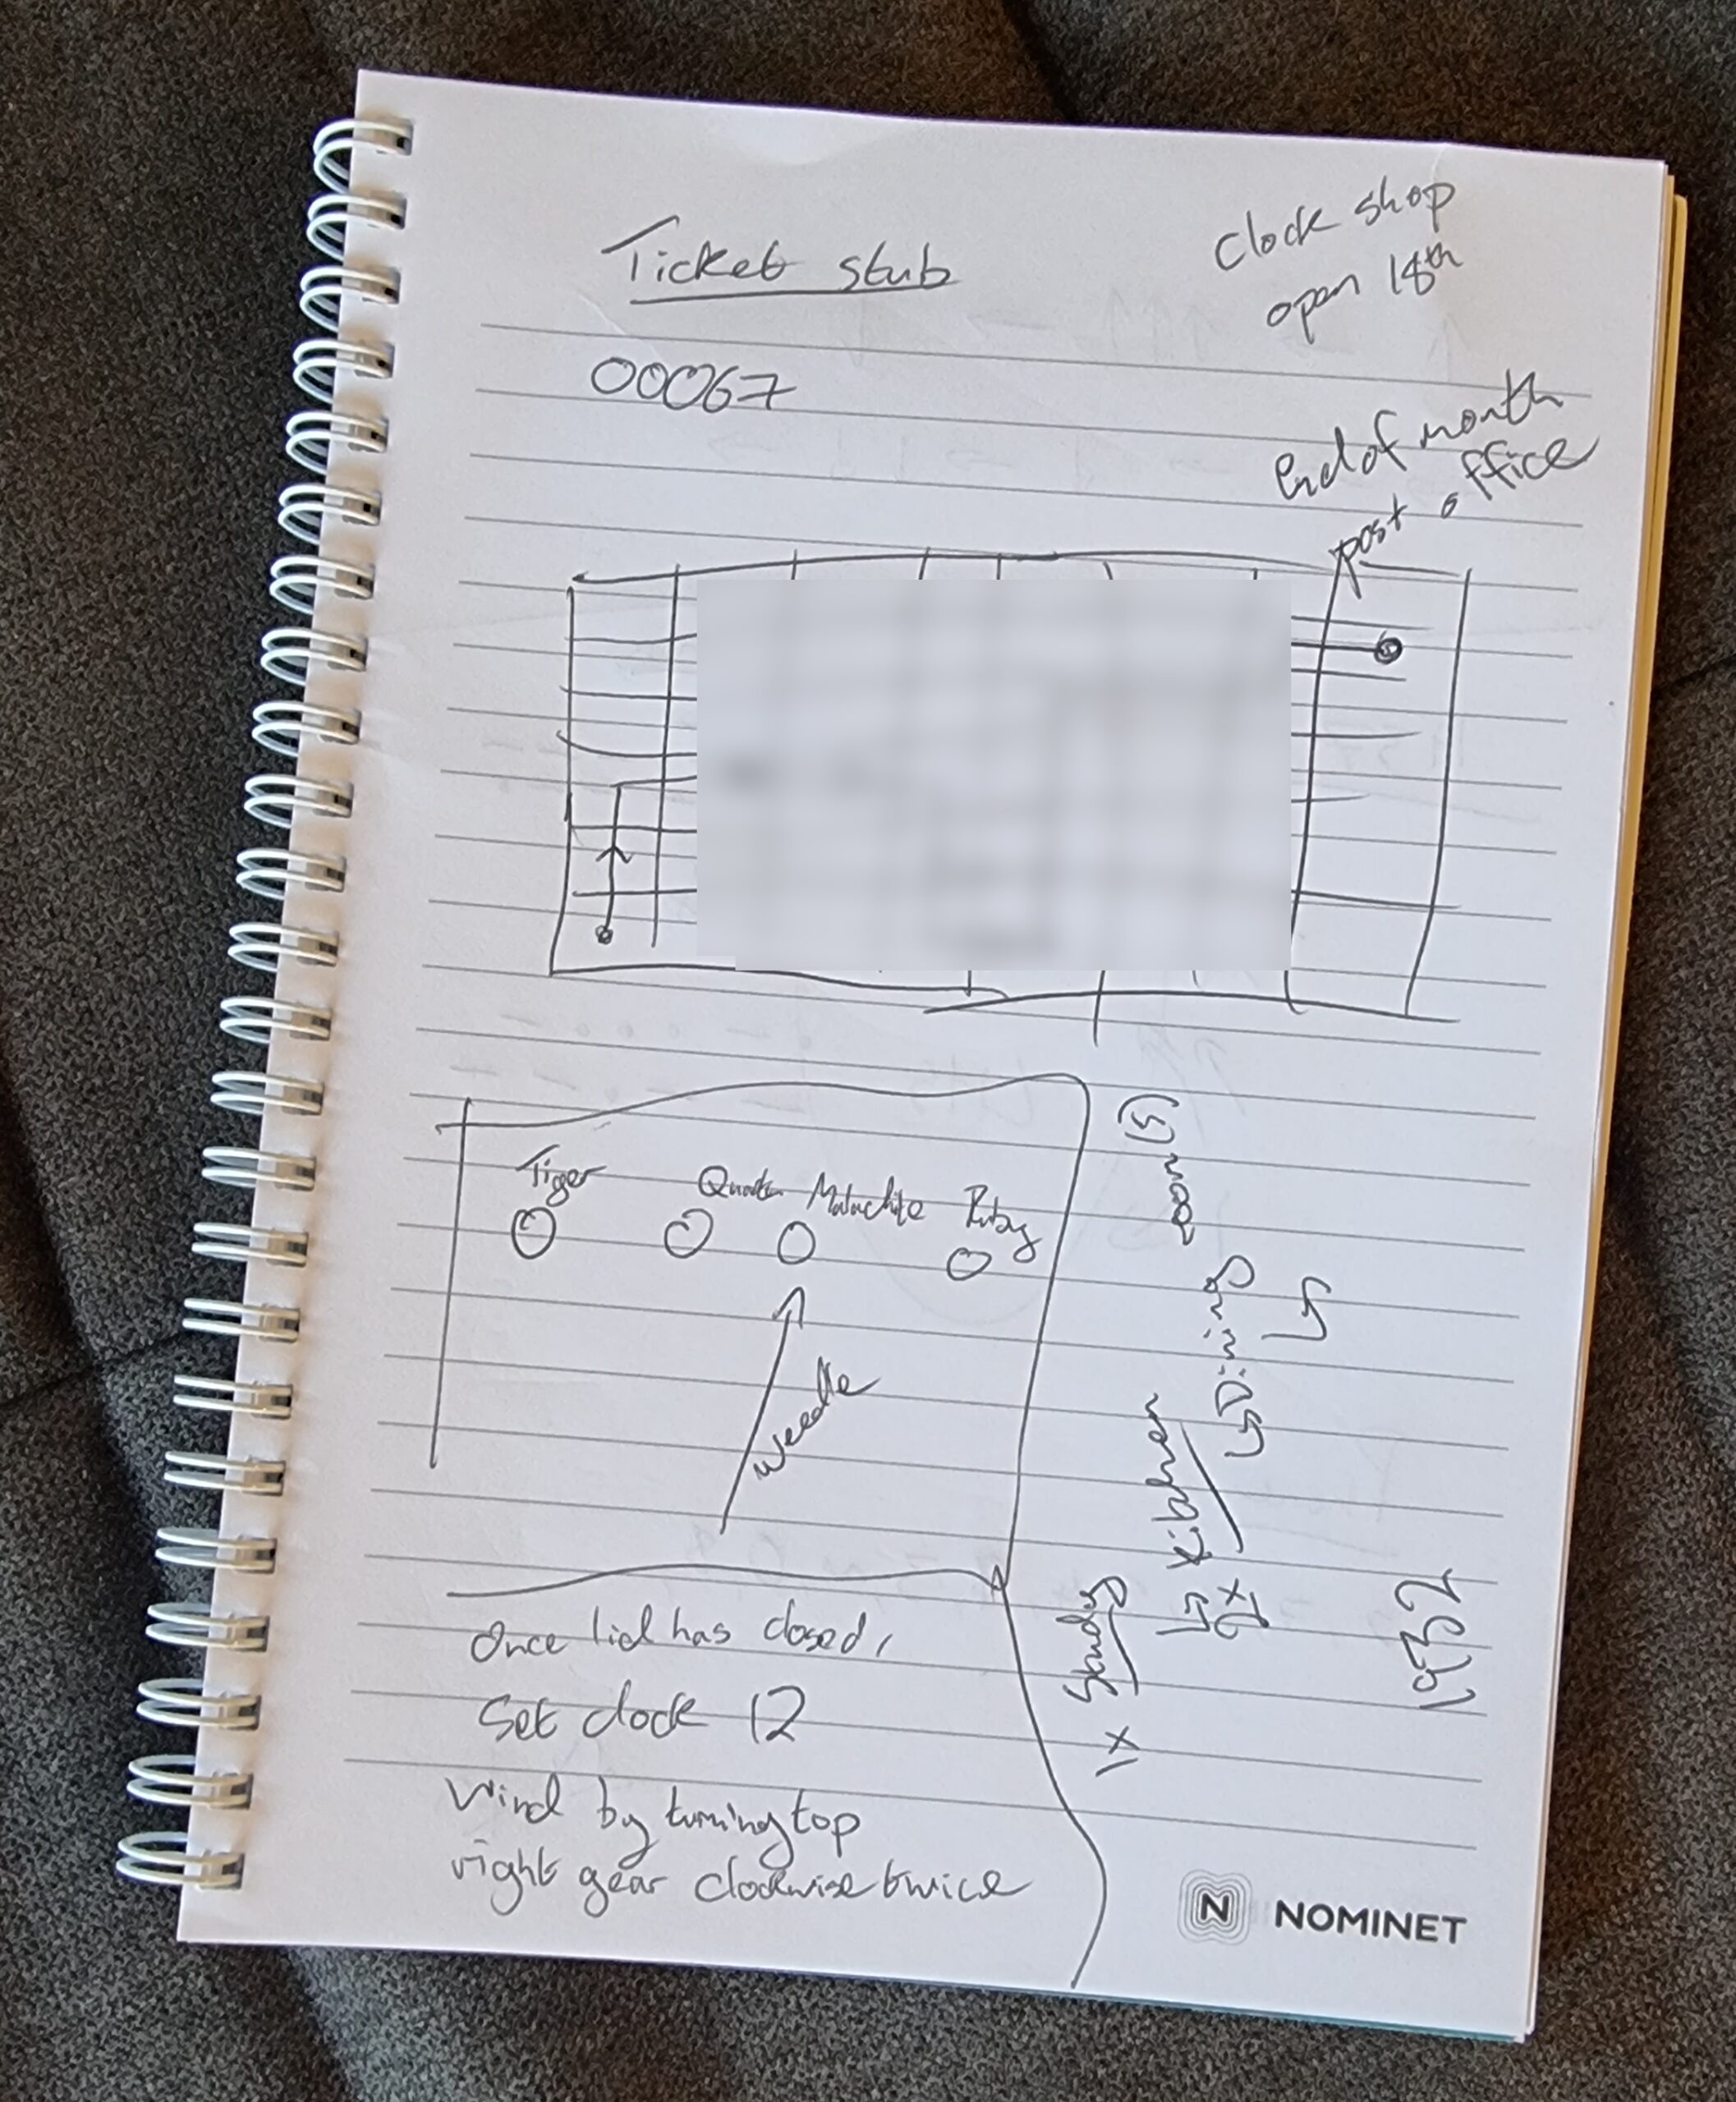 Ticket stub
Clock shop
open 18th
00067
End of month
post office
Tiger
Malachite
Ruby
Needle
Once lid has closed,
Set clock 12
Wind by turning top
right gear clockwise twice
1x Study
↳ Kitchen
9x
↳ Dining
↳
room (5)
1932
N NOMINET